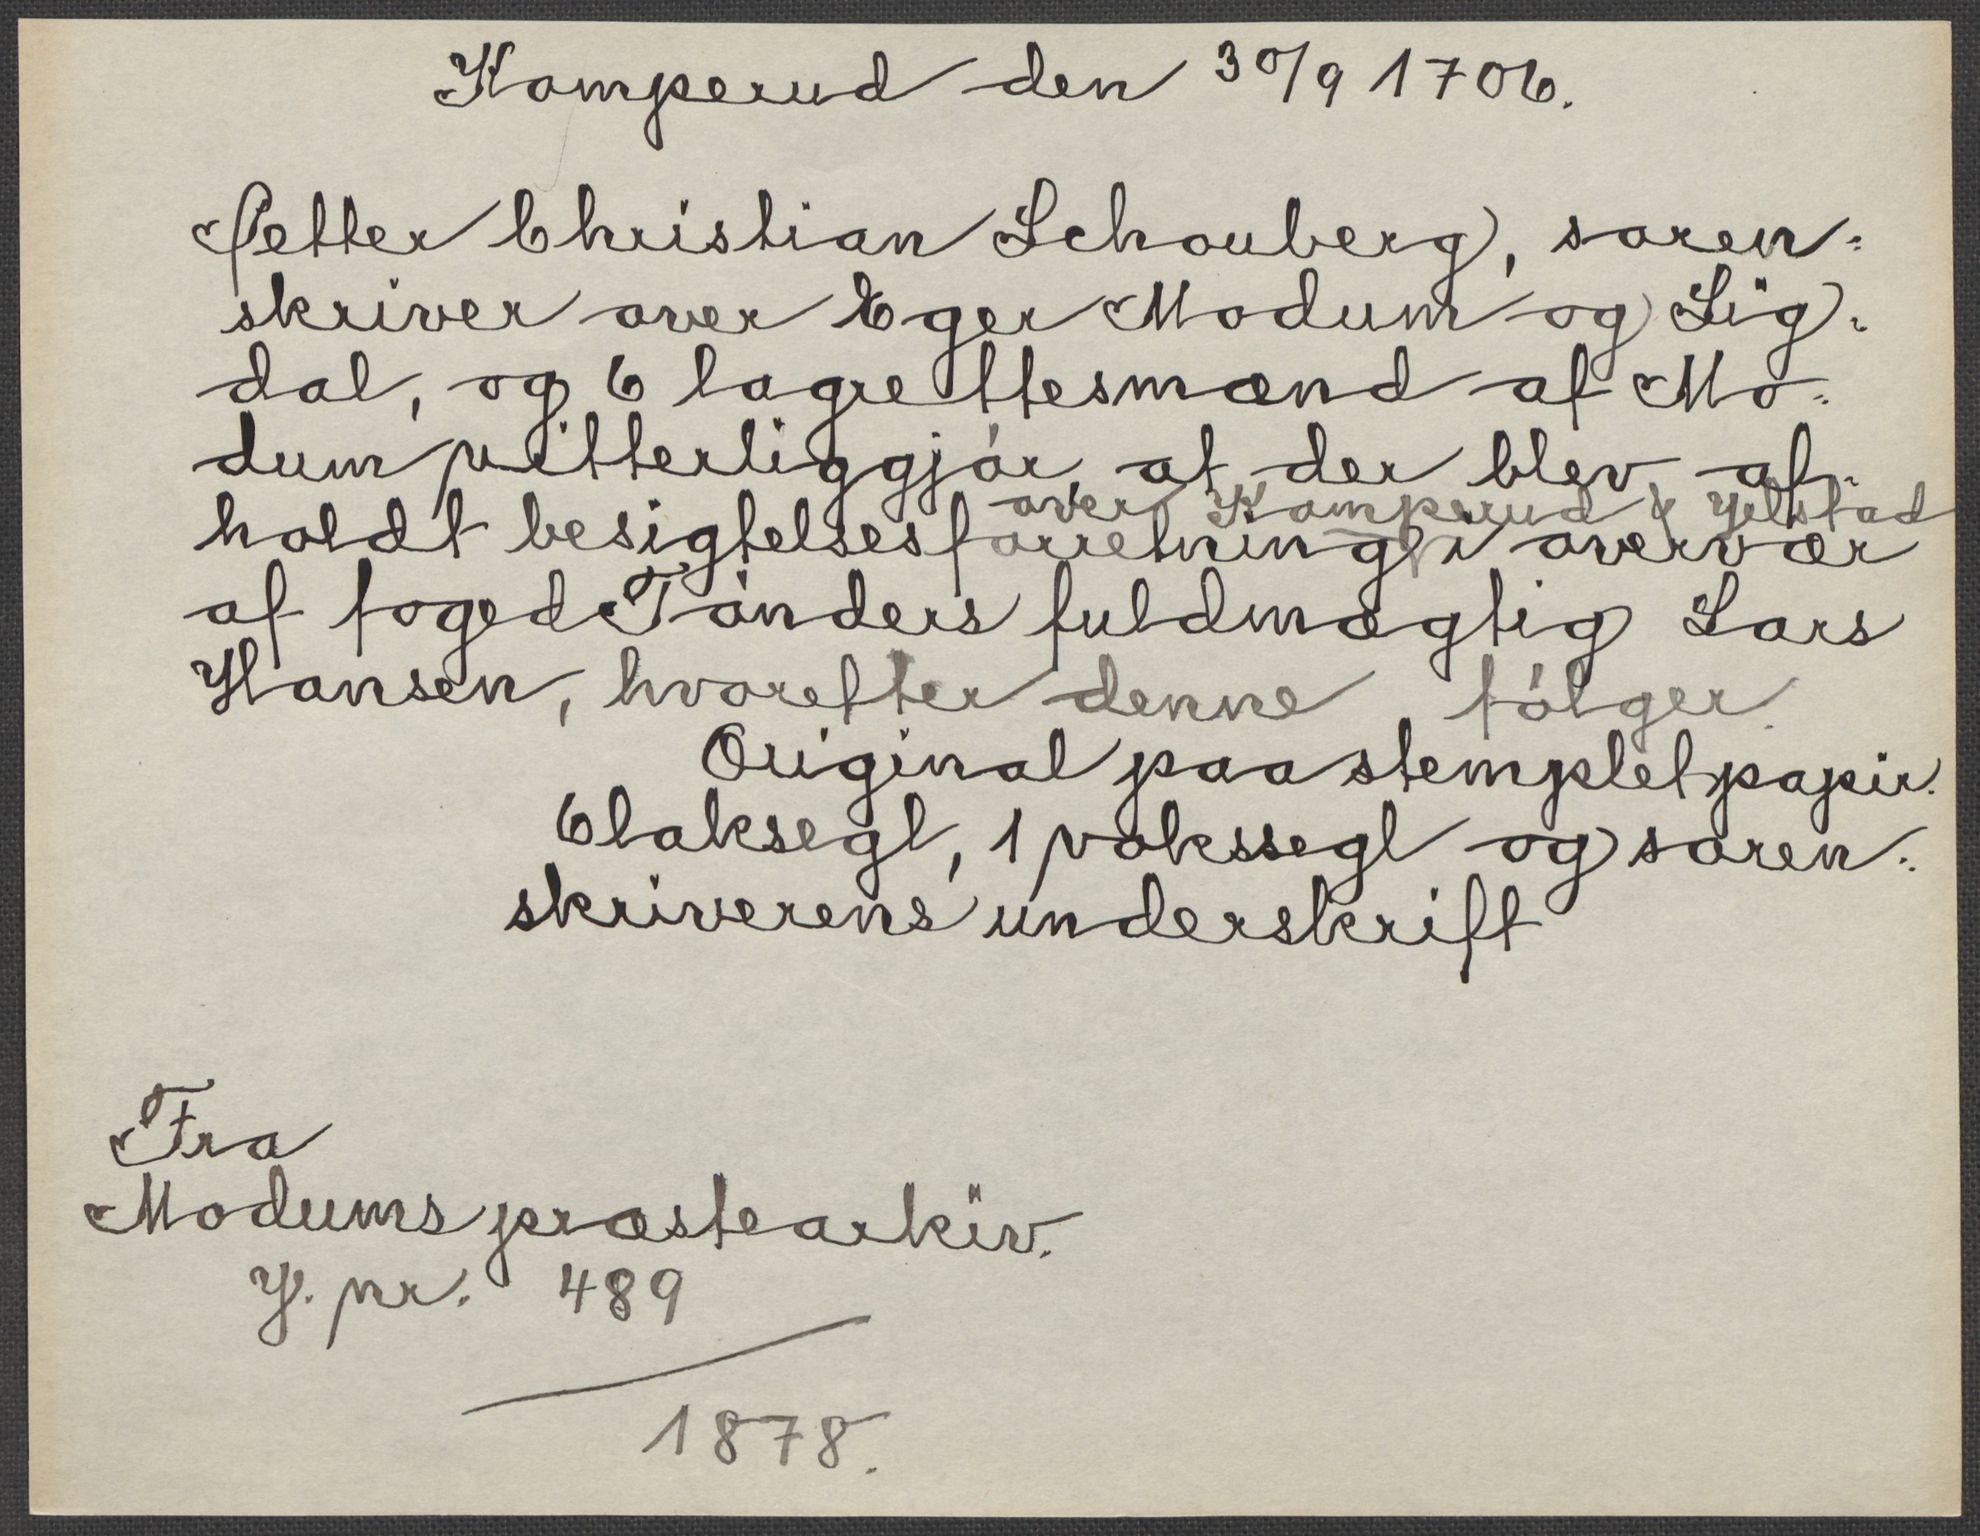 Komperud den 30/9 1706.
Petter Christian Schouberg, soren=
skriver over Eger Modum og Sig=
dal, og 6 lagrettesmænd af Mo=
dum vitterliggjör, at der blev af=
over Komperud &
holdt besigtelsesforretning i overvær
af foged Tönders fuldmægtig Lars
Hansen, hvorefter denne følger.
Original paa stemplet papir.
6 laksegl, 1 vokssegl og soren=
skriverens underskrift
Fra
Modums præstearkiv.
J. nr. 489
1878.